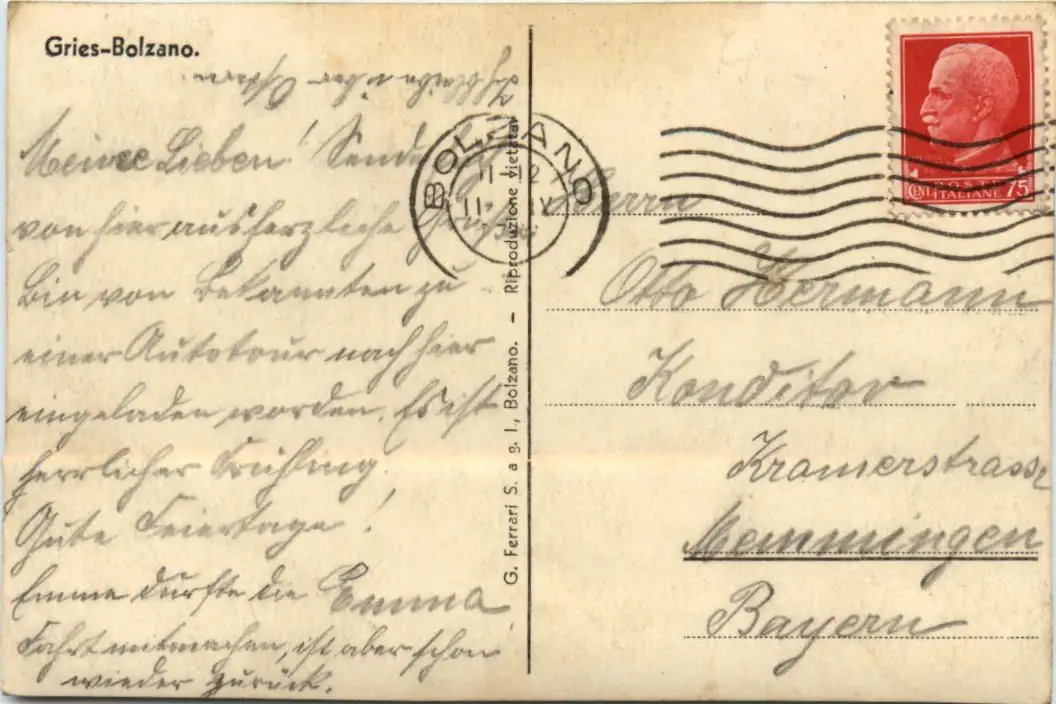 Gries-Bolzano.
Ich bleibe über Ostern.
Meine Lieben! Sende
von hier aus herzliche Grüße
Bin von Bekannten zu
einer Autotour nach hier
eingeladen worden. Es ist
herrlicher Frühling!
Gute Feiertage!
Emma
Emme durfte die
Fahrt mitmachen, ist aber schon
wieder zurück.
G. Ferrari S. a g. l., Bolzano. - Riproduzione vietata
BOLZANO
11-12
11 IV
POSTE
ITALIANE
CENT 75
Herrn
Otto Hermann
Konditor
Kramerstrasse
Memmingen
Bayern